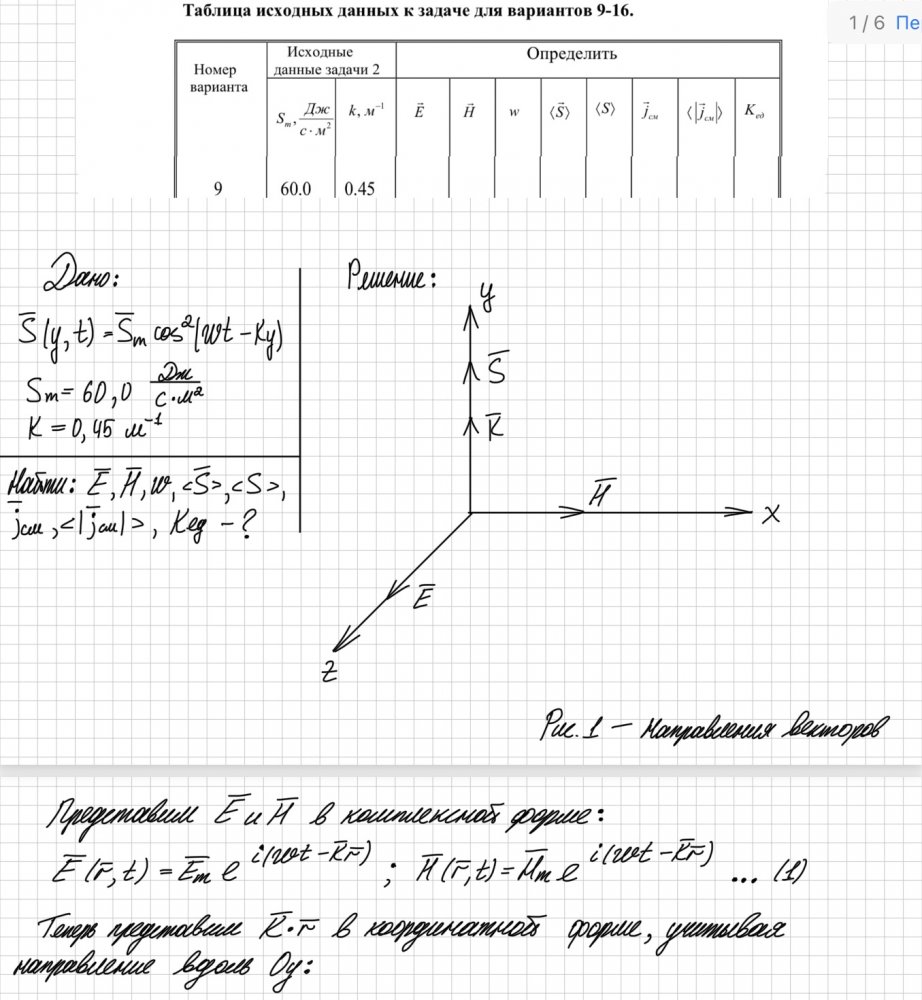 Таблица исходных данных к задаче для вариантов 9-16.
1 / 6 Пе
Номер варианта
Исходные данные задачи 2
Определить
S_m, Дж/(с·м²)
k, м⁻¹
E⃗
H⃗
w
⟨S⃗⟩
⟨S⟩
j⃗_см
⟨|j⃗_см|⟩
K_ед
9 60.0 0.45
Дано:
S̅(y,t) = S̅m cos²(wt - Ky)
Sm = 60,0 Дж/(с·м²)
K = 0,45 м⁻¹
Найти: E̅, H̅, w, <S̅>, <S>,
j̅см, <|j̅см|>, Kед - ?
Решение:
y
S̅
K̅
H̅
x
E̅
z
Рис. 1 — Направления векторов
Представим E̅ и H̅ в комплексной форме:
E̅(r̅,t) = E̅m e^i(wt - K̅r̅) ; H̅(r̅,t) = H̅m e^i(wt - K̅r̅) ... (1)
Теперь представим K̅·r̅ в координатной форме, учитывая
направление вдоль Oy: